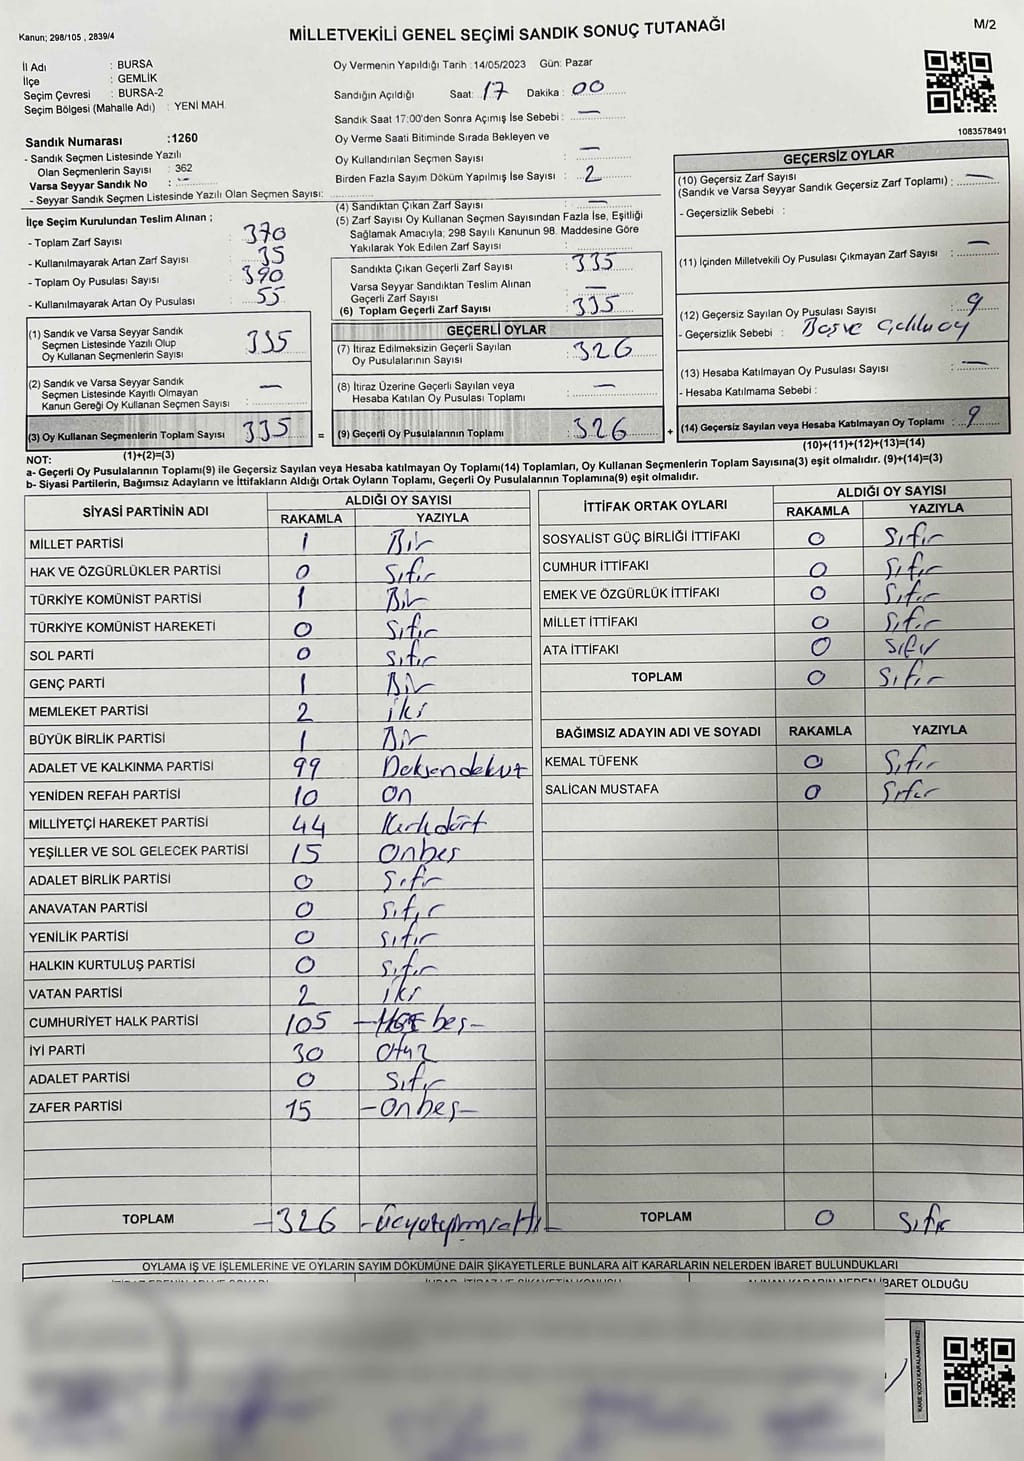 Kanun; 298/105 , 2839/4
MİLLETVEKİLİ GENEL SEÇİMİ SANDIK SONUÇ TUTANAĞI
M/2
İl Adı : BURSA
İlçe : GEMLİK
Seçim Çevresi : BURSA-2
Seçim Bölgesi (Mahalle Adı) : YENİ MAH
Sandık Numarası :1260
- Sandık Seçmen Listesinde Yazılı
Olan Seçmenlerin Sayısı : 362
Varsa Seyyar Sandık No : -
- Seyyar Sandık Seçmen Listesinde Yazılı Olan Seçmen Sayısı:
Oy Vermenin Yapıldığı Tarih :14/05/2023 Gün: Pazar
Sandığın Açıldığı Saat: 17 Dakika : 00
Sandık Saat 17:00'den Sonra Açımış İse Sebebi : —
Oy Verme Saati Bitiminde Sırada Bekleyen ve
Oy Kullandırılan Seçmen Sayısı : —
Birden Fazla Sayım Döküm Yapılmış İse Sayısı : 2
1083578491
İlçe Seçim Kurulundan Teslim Alınan ;
- Toplam Zarf Sayısı : 370
- Kullanılmayarak Artan Zarf Sayısı : 35
- Toplam Oy Pusulası Sayısı : 390
- Kullanılmayarak Artan Oy Pusulası : 55
(1) Sandık ve Varsa Seyyar Sandık
Seçmen Listesinde Yazılı Olup
Oy Kullanan Seçmenlerin Sayısı : 335
(2) Sandık ve Varsa Seyyar Sandık
Seçmen Listesinde Kayıtlı Olmayan
Kanun Gereği Oy Kullanan Seçmen Sayısı : —
(3) Oy Kullanan Seçmenlerin Toplam Sayısı 335
(1)+(2)=(3)
(4) Sandıktan Çıkan Zarf Sayısı : —
(5) Zarf Sayısı Oy Kullanan Seçmen Sayısından Fazla İse, Eşitliği
Sağlamak Amacıyla; 298 Sayılı Kanunun 98. Maddesine Göre
Yakılarak Yok Edilen Zarf Sayısı :
Sandıkta Çıkan Geçerli Zarf Sayısı : 335
Varsa Seyyar Sandıktan Teslim Alınan
Geçerli Zarf Sayısı : —
(6) Toplam Geçerli Zarf Sayısı : 335
GEÇERLİ OYLAR
(7) İtiraz Edilmeksizin Geçerli Sayılan
Oy Pusulalarının Sayısı : 326
(8) İtiraz Üzerine Geçerli Sayılan veya
Hesaba Katılan Oy Pusulası Toplamı : —
= (9) Geçerli Oy Pusulalarının Toplamı : 326
GEÇERSİZ OYLAR
(10) Geçersiz Zarf Sayısı
(Sandık ve Varsa Seyyar Sandık Geçersiz Zarf Toplamı) : —
- Geçersizlik Sebebi :
(11) İçinden Milletvekili Oy Pusulası Çıkmayan Zarf Sayısı : —
(12) Geçersiz Sayılan Oy Pusulası Sayısı : 9
- Geçersizlik Sebebi :
(13) Hesaba Katılmayan Oy Pusulası Sayısı : —
- Hesaba Katılmama Sebebi :
+ (14) Geçersiz Sayılan veya Hesaba Katılmayan Oy Toplamı : 9
(10)+(11)+(12)+(13)=(14)
NOT:
a- Geçerli Oy Pusulalarının Toplamı(9) ile Geçersiz Sayılan veya Hesaba katılmayan Oy Toplamı(14) Toplamları, Oy Kullanan Seçmenlerin Toplam Sayısına(3) eşit olmalıdır. (9)+(14)=(3)
b- Siyasi Partilerin, Bağımsız Adayların ve İttifakların Aldığı Ortak Oyların Toplamı, Geçerli Oy Pusulalarının Toplamına(9) eşit olmalıdır.
SİYASİ PARTİNİN ADI ALDIĞI OY SAYISI
RAKAMLA YAZIYLA
MİLLET PARTİSİ 1 Bir
HAK VE ÖZGÜRLÜKLER PARTİSİ 0 Sıfır
TÜRKİYE KOMÜNİST PARTİSİ 1 Bir
TÜRKİYE KOMÜNİST HAREKETİ 0 Sıfır
SOL PARTİ 0 Sıfır
GENÇ PARTİ 1 Bir
MEMLEKET PARTİSİ 2 iki
BÜYÜK BİRLİK PARTİSİ 1 Bir
ADALET VE KALKINMA PARTİSİ 99 Doksandokuz
YENİDEN REFAH PARTİSİ 10 On
MİLLİYETÇİ HAREKET PARTİSİ 44 Kırkdört
YEŞİLLER VE SOL GELECEK PARTİSİ 15 Onbeş
ADALET BİRLİK PARTİSİ 0 Sıfır
ANAVATAN PARTİSİ 0 Sıfır
YENİLİK PARTİSİ 0 Sıfır
HALKIN KURTULUŞ PARTİSİ 0 Sıfır
VATAN PARTİSİ 2 iki
CUMHURİYET HALK PARTİSİ 105 beş-
İYİ PARTİ 30 Otuz
ADALET PARTİSİ 0 Sıfır
ZAFER PARTİSİ 15 -Onbeş-
TOPLAM -326 -Üçyüzyirmialtı-
İTTİFAK ORTAK OYLARI ALDIĞI OY SAYISI
RAKAMLA YAZIYLA
SOSYALİST GÜÇ BİRLİĞİ İTTİFAKI 0 Sıfır
CUMHUR İTTİFAKI 0 Sıfır
EMEK VE ÖZGÜRLÜK İTTİFAKI 0 Sıfır
MİLLET İTTİFAKI 0 Sıfır
ATA İTTİFAKI 0 Sıfır
TOPLAM 0 Sıfır
BAĞIMSIZ ADAYIN ADI VE SOYADI RAKAMLA YAZIYLA
KEMAL TÜFENK 0 Sıfır
SALİCAN MUSTAFA 0 Sıfır
TOPLAM 0 Sıfır
OYLAMA İŞ VE İŞLEMLERİNE VE OYLARIN SAYIM DÖKÜMÜNE DAİR ŞİKAYETLERLE BUNLARA AİT KARARLARIN NELERDEN İBARET BULUNDUKLARI
İBARET OLDUĞU
KARE KODU KARALAMAYINIZ!